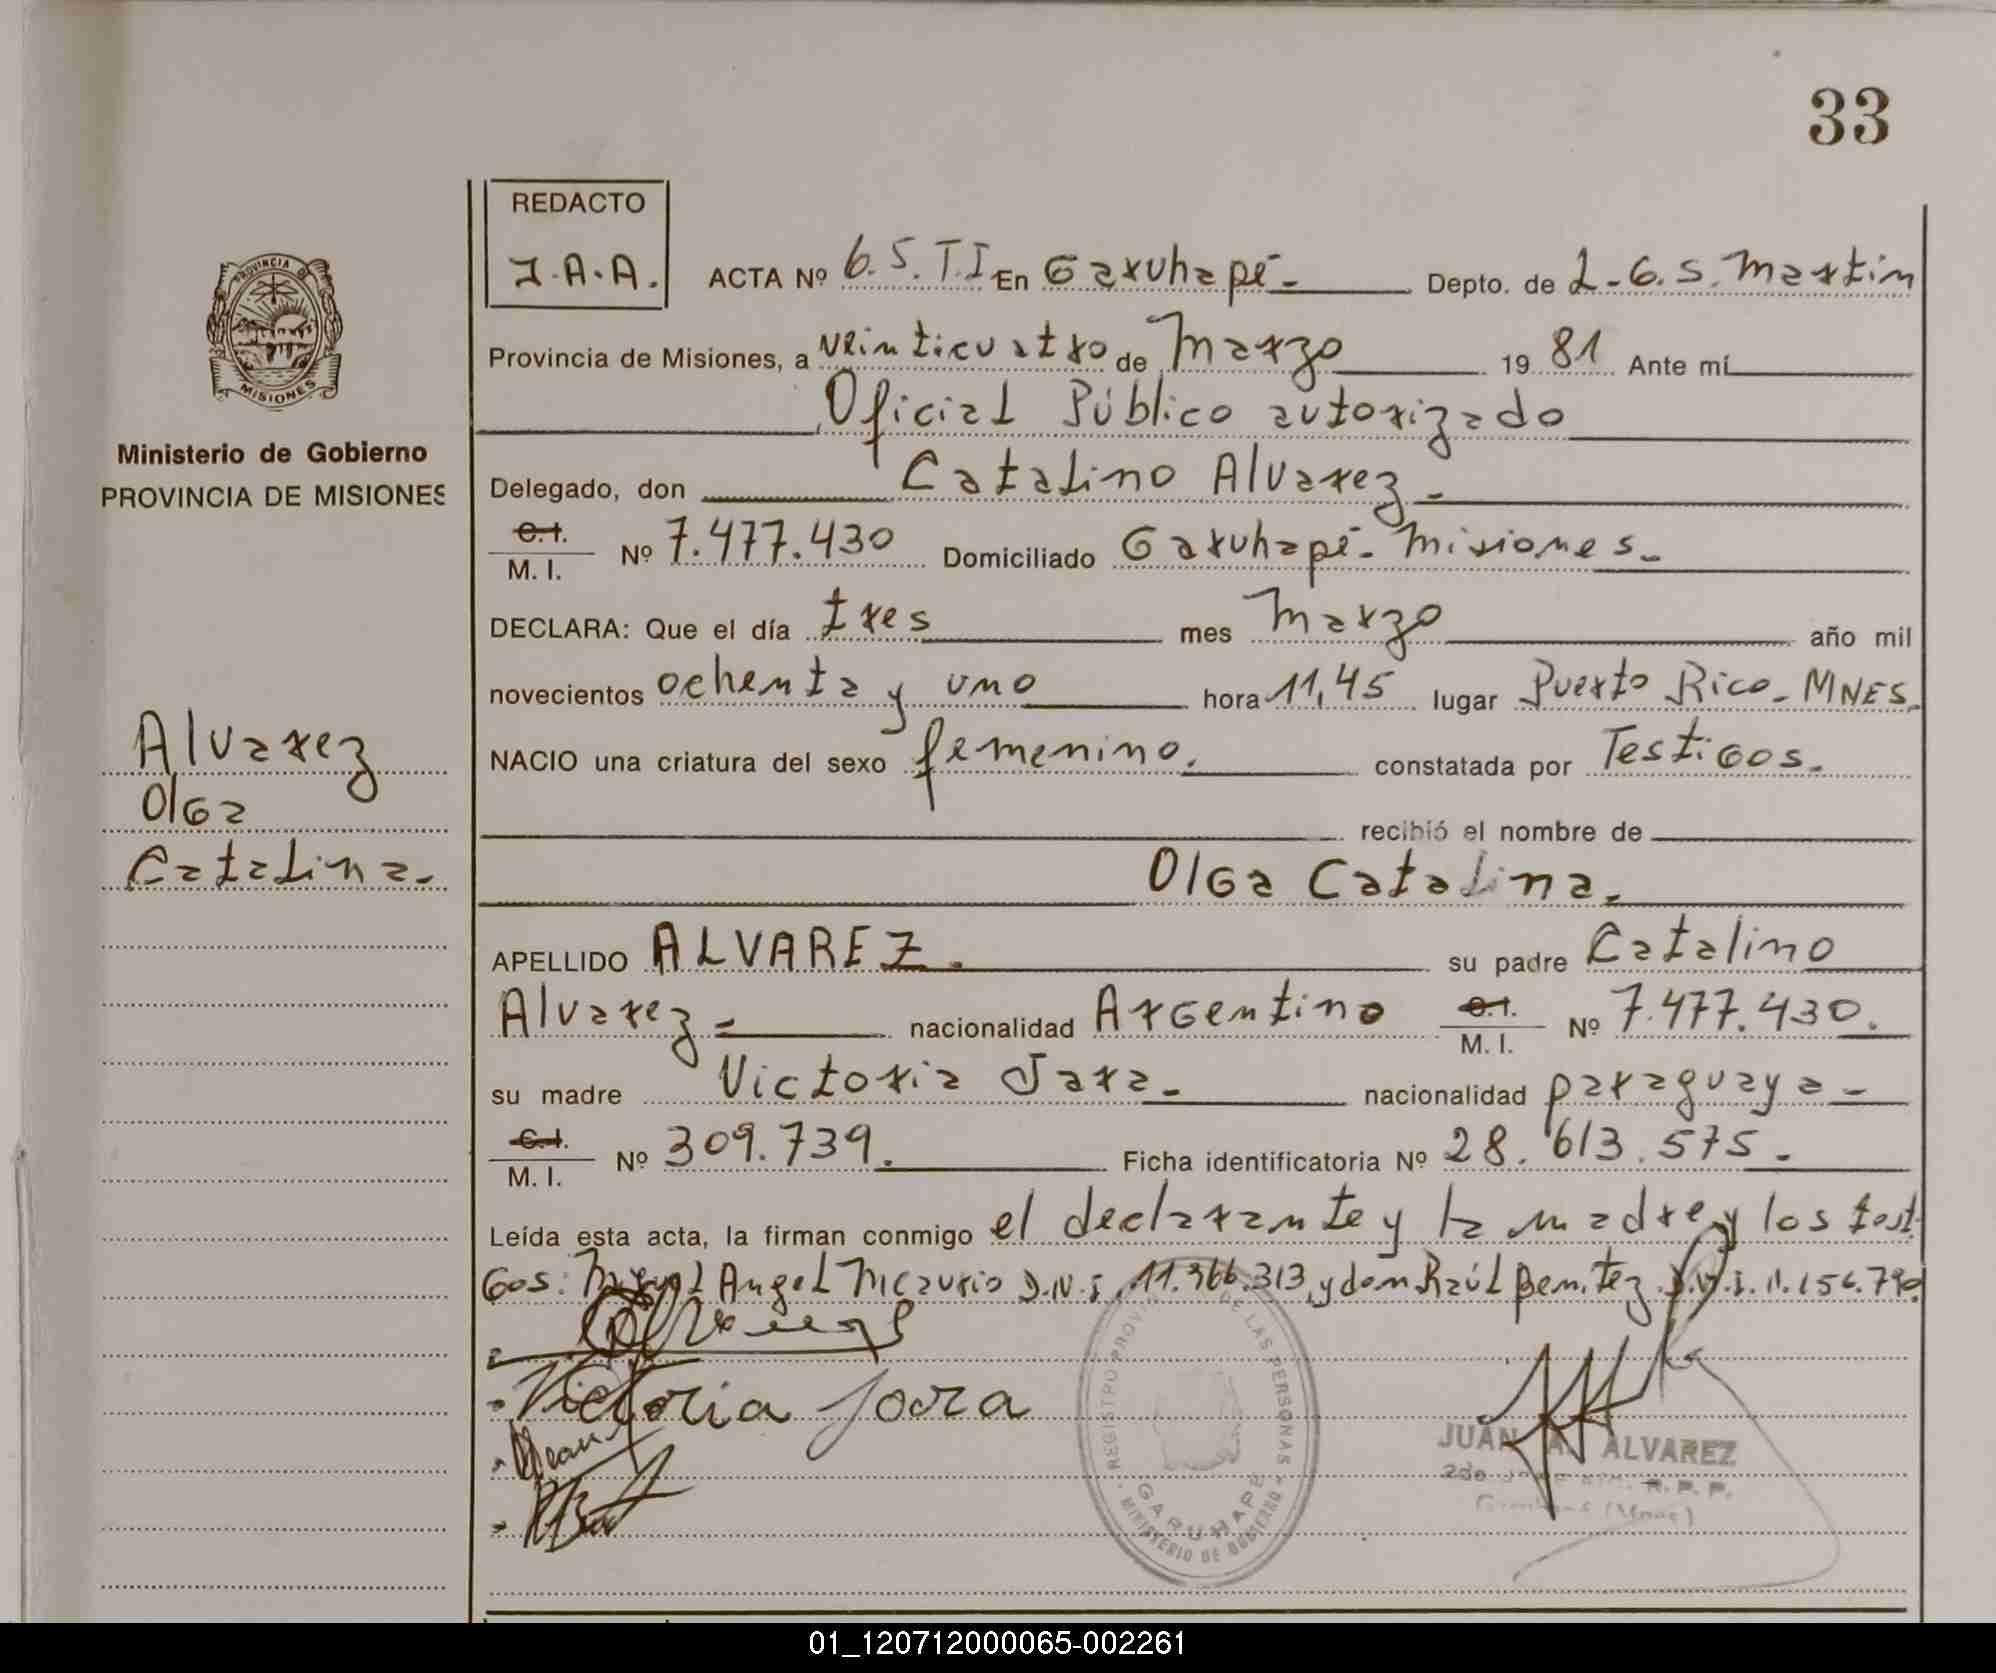 33
REDACTO
J.A.A.
ACTA Nº 6.S.T.I En Garuhapé - Depto. de L.G.S. Martin
Provincia de Misiones, a veinticuatro de Marzo 1981 Ante mí
Oficial Público autorizado
Delegado, don Catalino Alvarez -
C.I. M. I. Nº 7.477.430 Domiciliado Garuhapé - Misiones -
DECLARA: Que el día tres mes Marzo año mil
novecientos ochenta y uno hora 11,45 lugar Puerto Rico - MNES.
NACIO una criatura del sexo femenino. constatada por Testigos.
recibió el nombre de
Olga Catalina.
APELLIDO ALVAREZ. su padre Catalino
Alvarez = nacionalidad Argentino C.I. M. I. Nº 7.477.430.
su madre Victoria Jara - nacionalidad paraguaya -
C.I. M. I. Nº 309.739. Ficha identificatoria Nº 28.613.575 -
Leída esta acta, la firman conmigo el declarante y la madre y los testi
gos: Miguel Angel Mcaurio D.N.I. 11.366.313, y don Raúl Benitez D.N.I. 11.154.790
Victoria Jara
REGISTRO PROVINCIAL DE LAS PERSONAS
GARUHAPE
MINISTERIO DE GOBIERNO
JUAN A. ALVAREZ
2do R. P. P.
PROVINCIA DE
MISIONES
Ministerio de Gobierno
PROVINCIA DE MISIONES
Alvarez
Olga
Catalina -
01_120712000065-002261